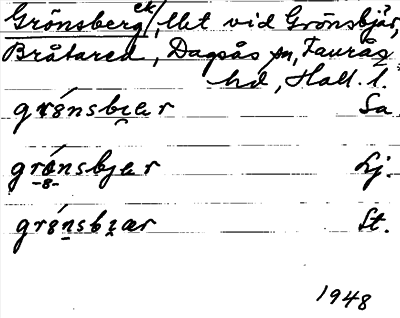 Grönsberg ek/, Ukt vid Grönsbjär,
Bråtared, Dagsås sn, Faurås
hd, Hall. l.
grønsbɪær Sa
grönsbjær Lj.
-8-
grønsbɪær St.
1948